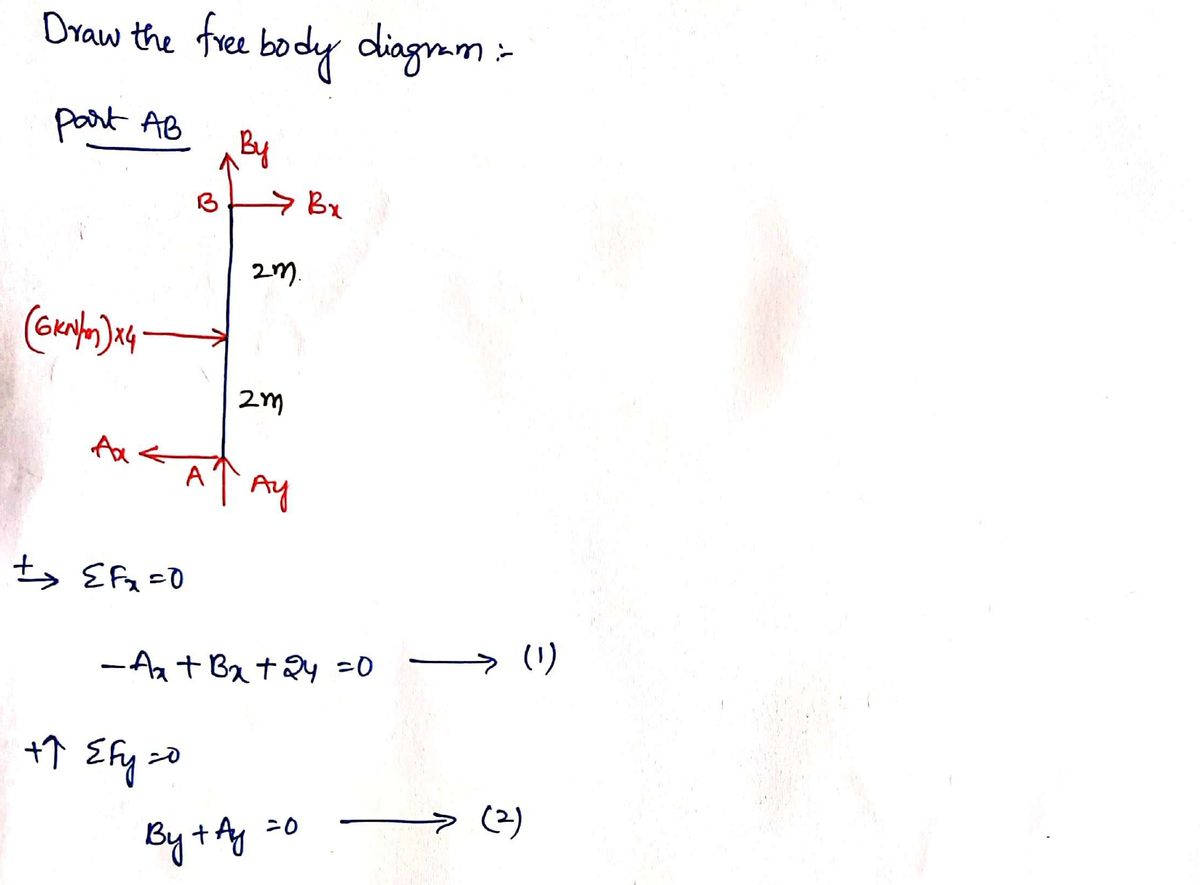 Draw the free body diagram :-
part AB
By
B → Bx
2m.
(6KN/m)x4 →
2m
Ax ←
A ↑ Ay
+→ ΣFx =0
-Ax + Bx + 24 =0 → (1)
+↑ ΣFy =0
By + Ay =0 → (2)